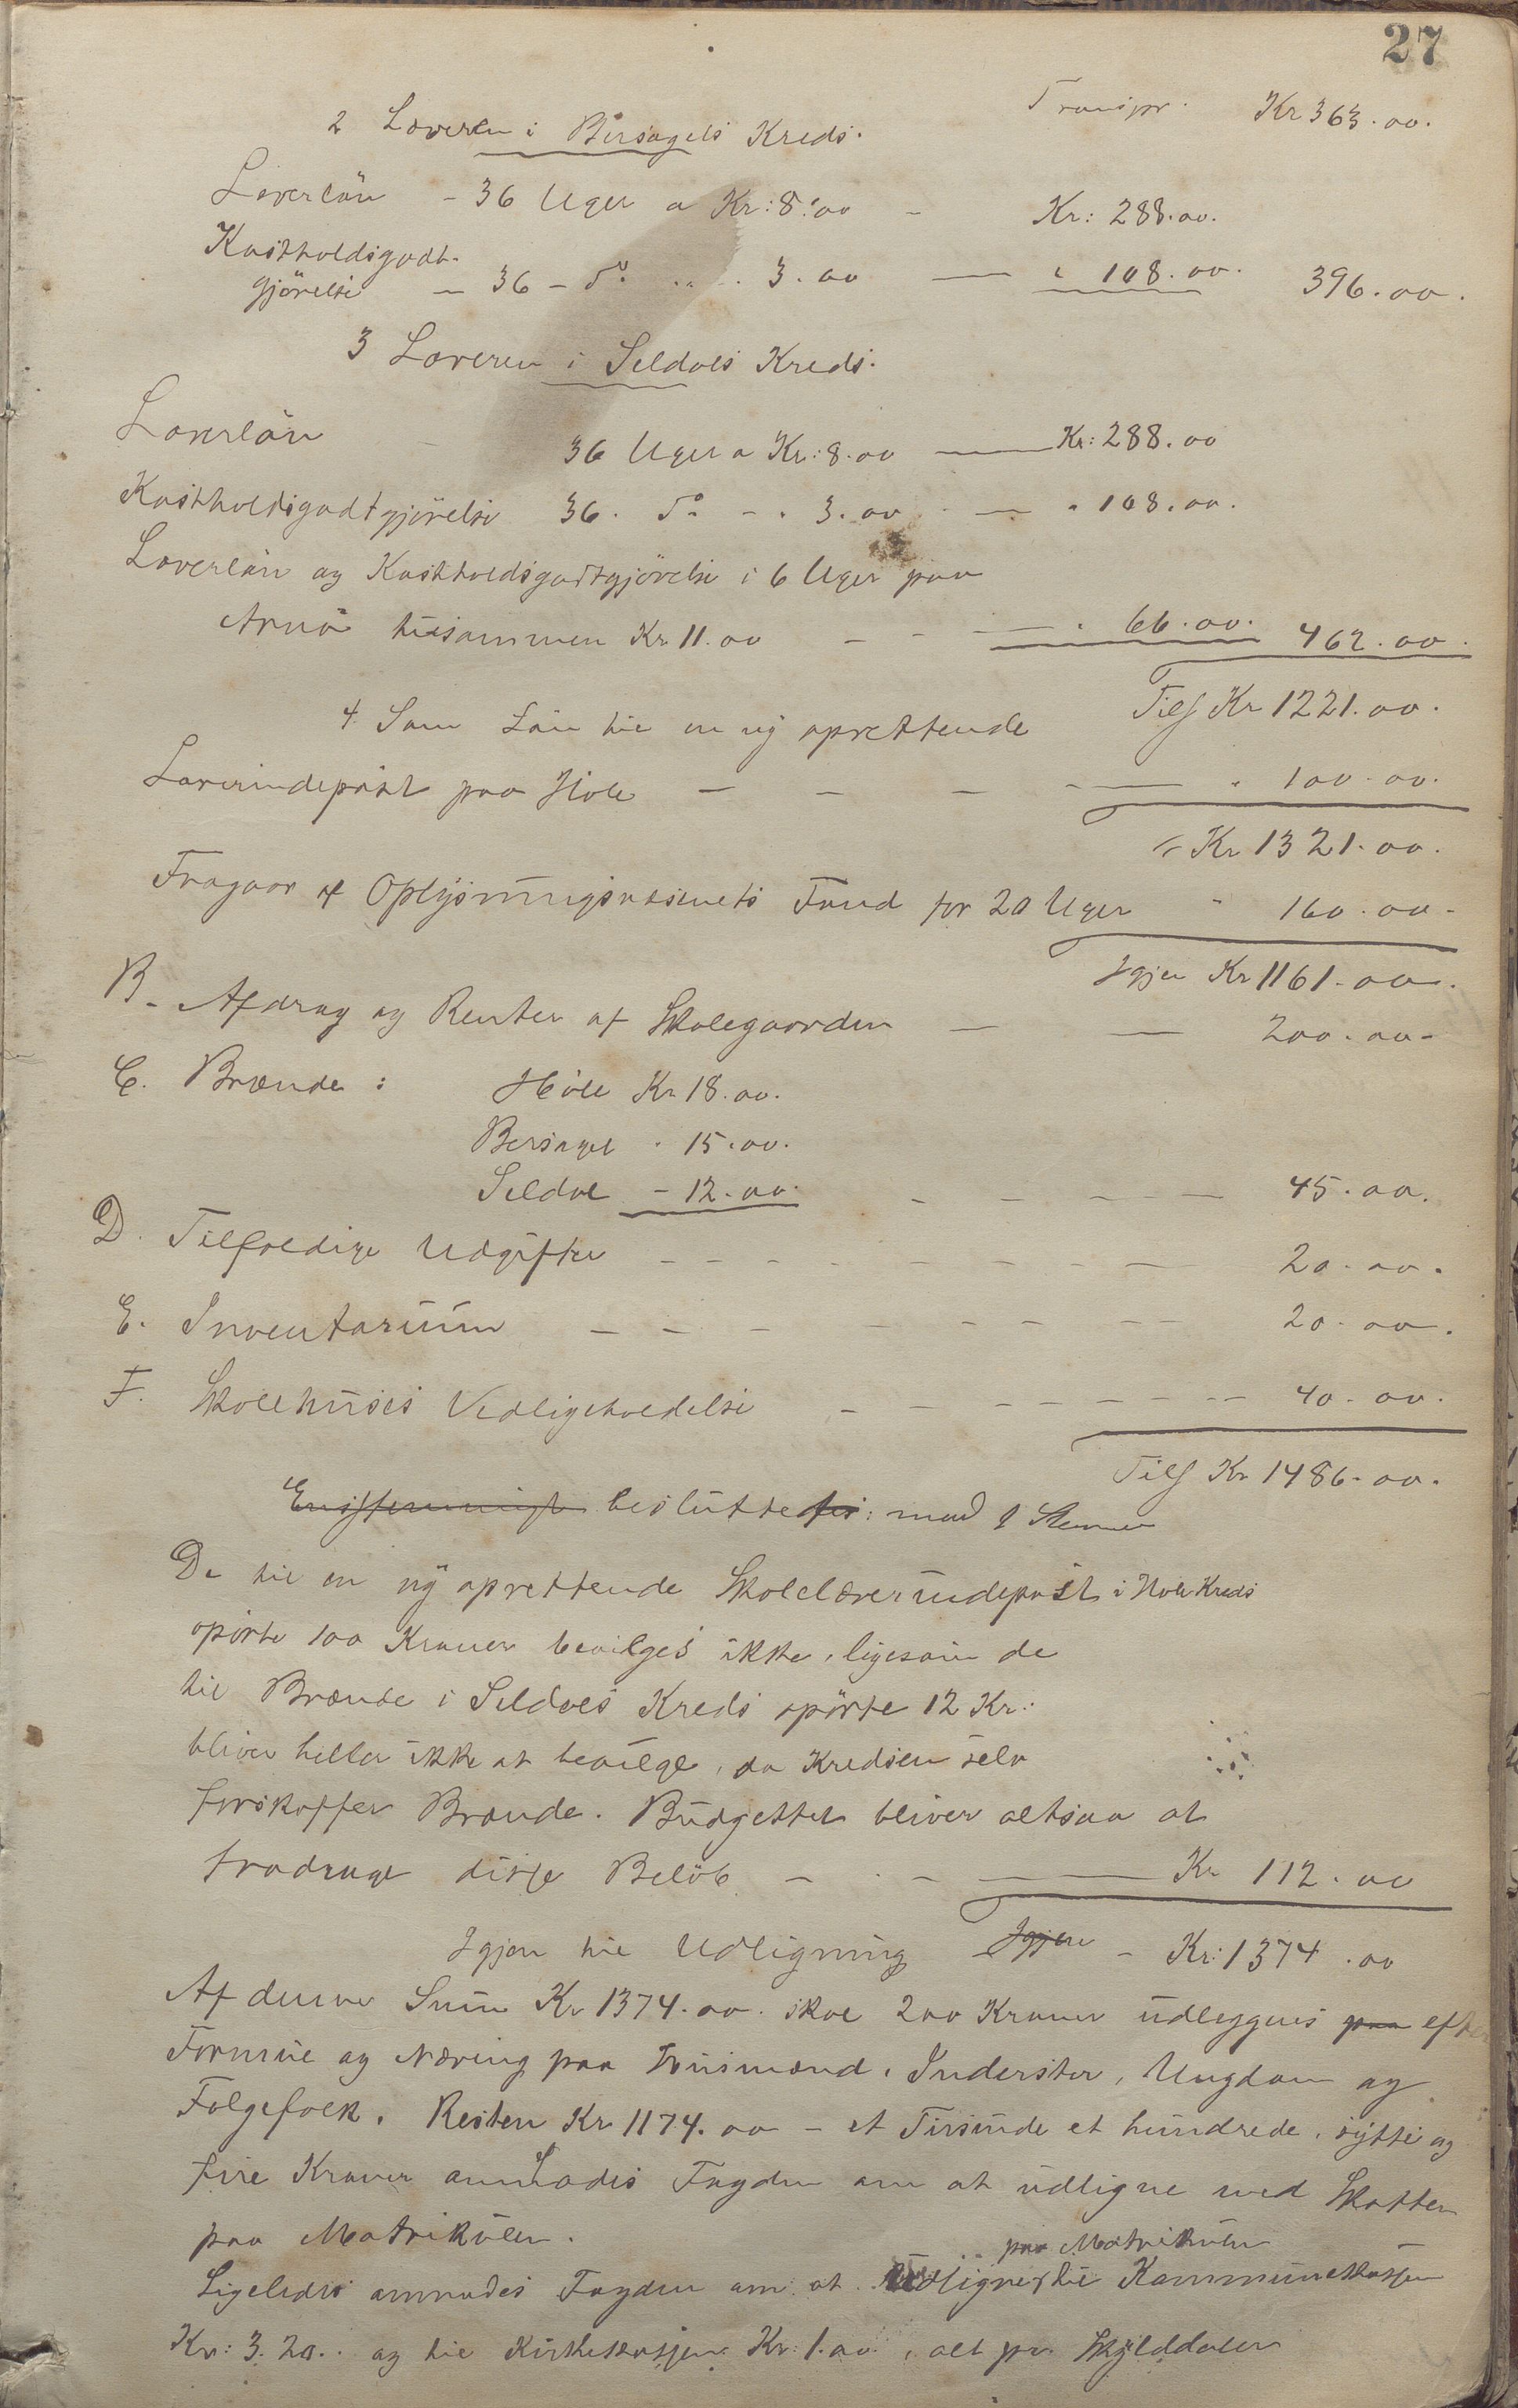 27
Transpr. Kr 363.00.
2 Læreren i Bersagels Kreds.
Lærerlön - 36 Uger a Kr: 8.00 - Kr: 288.00.
Kostholdsgodt-
gjörelse - 36 - Do „ - 3.00 — " 108.00. 396.00.
3 Læreren i Seldals Kreds.
Lærerlön - 36 Uger a Kr: 8.00 — Kr: 288.00
Kostholdsgodtgjörelse 36. Do - . 3.00 - — " 108.00.
Lærerlön og Kostholdsgodtgjörelse i 6 Uger paa
Arnö tilsammen Kr 11.00 - - — " 66.00. 462.00.
Tils Kr 1221.00.
4. Som Lön til en ny oprettende
Lærerindepost paa Höle — - — - — " 100.00.
= Kr 1321.00.
Fragaar af Oplysningsvæsenets Fond for 20 Uger " 160.00-
Igjen Kr 1161.00.
B. Afdrag og Renter af Skolegaarden — — 200.00-
C. Brænde: Höle Kr 18.00.
Bersagel " 15.00.
Seldal - 12.00. - - - - — 45.00.
D. Tilfældige Udgifter - - - - - - - - — 20.00.
E. Inventarium - - - - - - - - 20.00.
F. Skolehusets Vedligeholdelse - - - - - - - - 40.00.
Tils Kr 1486.00.
Enstemmigt besluttedes: med Stemmer
De til en ny oprettende Skolelærerindepost i Höle Kreds
opförte 100 Kroner bevilges ikke, ligesom de
til Brænde i Seldals Kreds opförte 12 Kr:
bliver heller ikke at bevilge, da Kredsen selv
forskaffer Brænde. Budgettet bliver altsaa at
fradrage disse Belöb - - - — Kr 112.00
Igjen til Udligning Igjen - Kr: 1374.00
Af denne Sum Kr 1374.00. skal 200 Kroner udlegges paa efter
Formue og Næring paa Husmænd, Inderster, Ungdom og
Folgefolk. Resten Kr 1174.00 - et Tusinde et hundrede, sytti og
fire Kroner anmodes Fogden om at udligne med Skatten
paa Matrikulen.
paa Matrikulen
Ligeledes anmodes Fogden om at Udligne til Kommunekassen
Kr: 3.20.. og til Kirkekassen Kr: 1.00, alt pr. Skylddaler